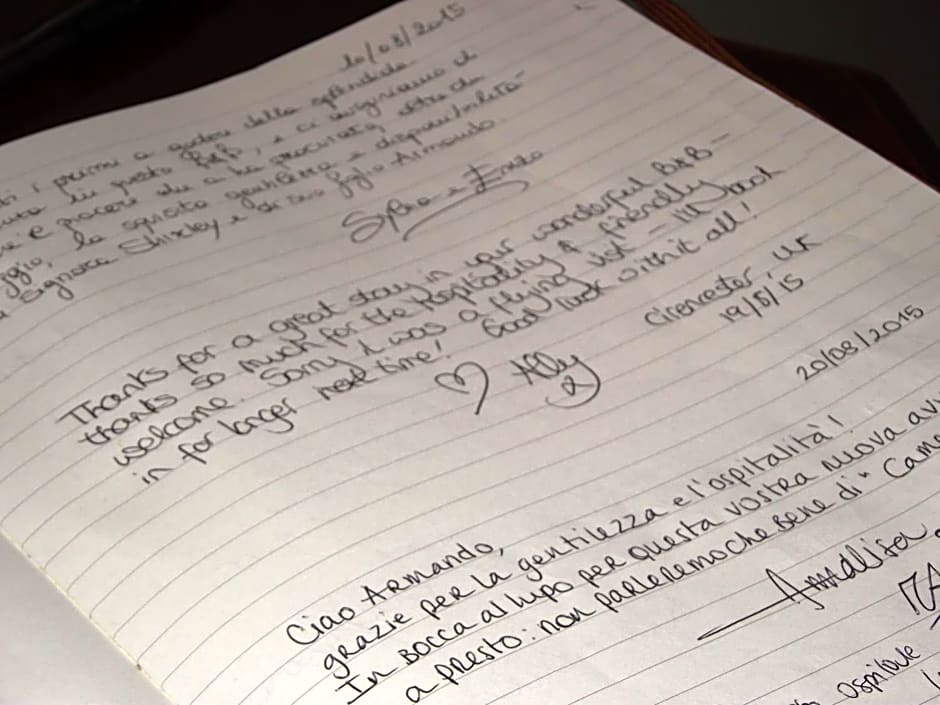 10/08/2015
i primi a godere della splendida
in questo B&B, e ci auguriamo di
e piacere che ci ha procurato, oltre da
la squisita gentilezza e disponibilità
Signora Shirley e di suo figlio Armando.
Thanks for a great stay in your wonderful B&B -
thanks so much for the hospitality & friendly
welcome. Sorry I was a flying visit - I'll book
in for longer next time! Good luck with it all!
♡ Ally
Cirencester, UK
19/8/15
20/08/2015
Ciao Armando,
grazie per la gentilezza e l'ospitalità!
In bocca al lupo per questa vostra nuova av
a presto: non parleremo che bene di "Cam
Annalisa
Ospitale